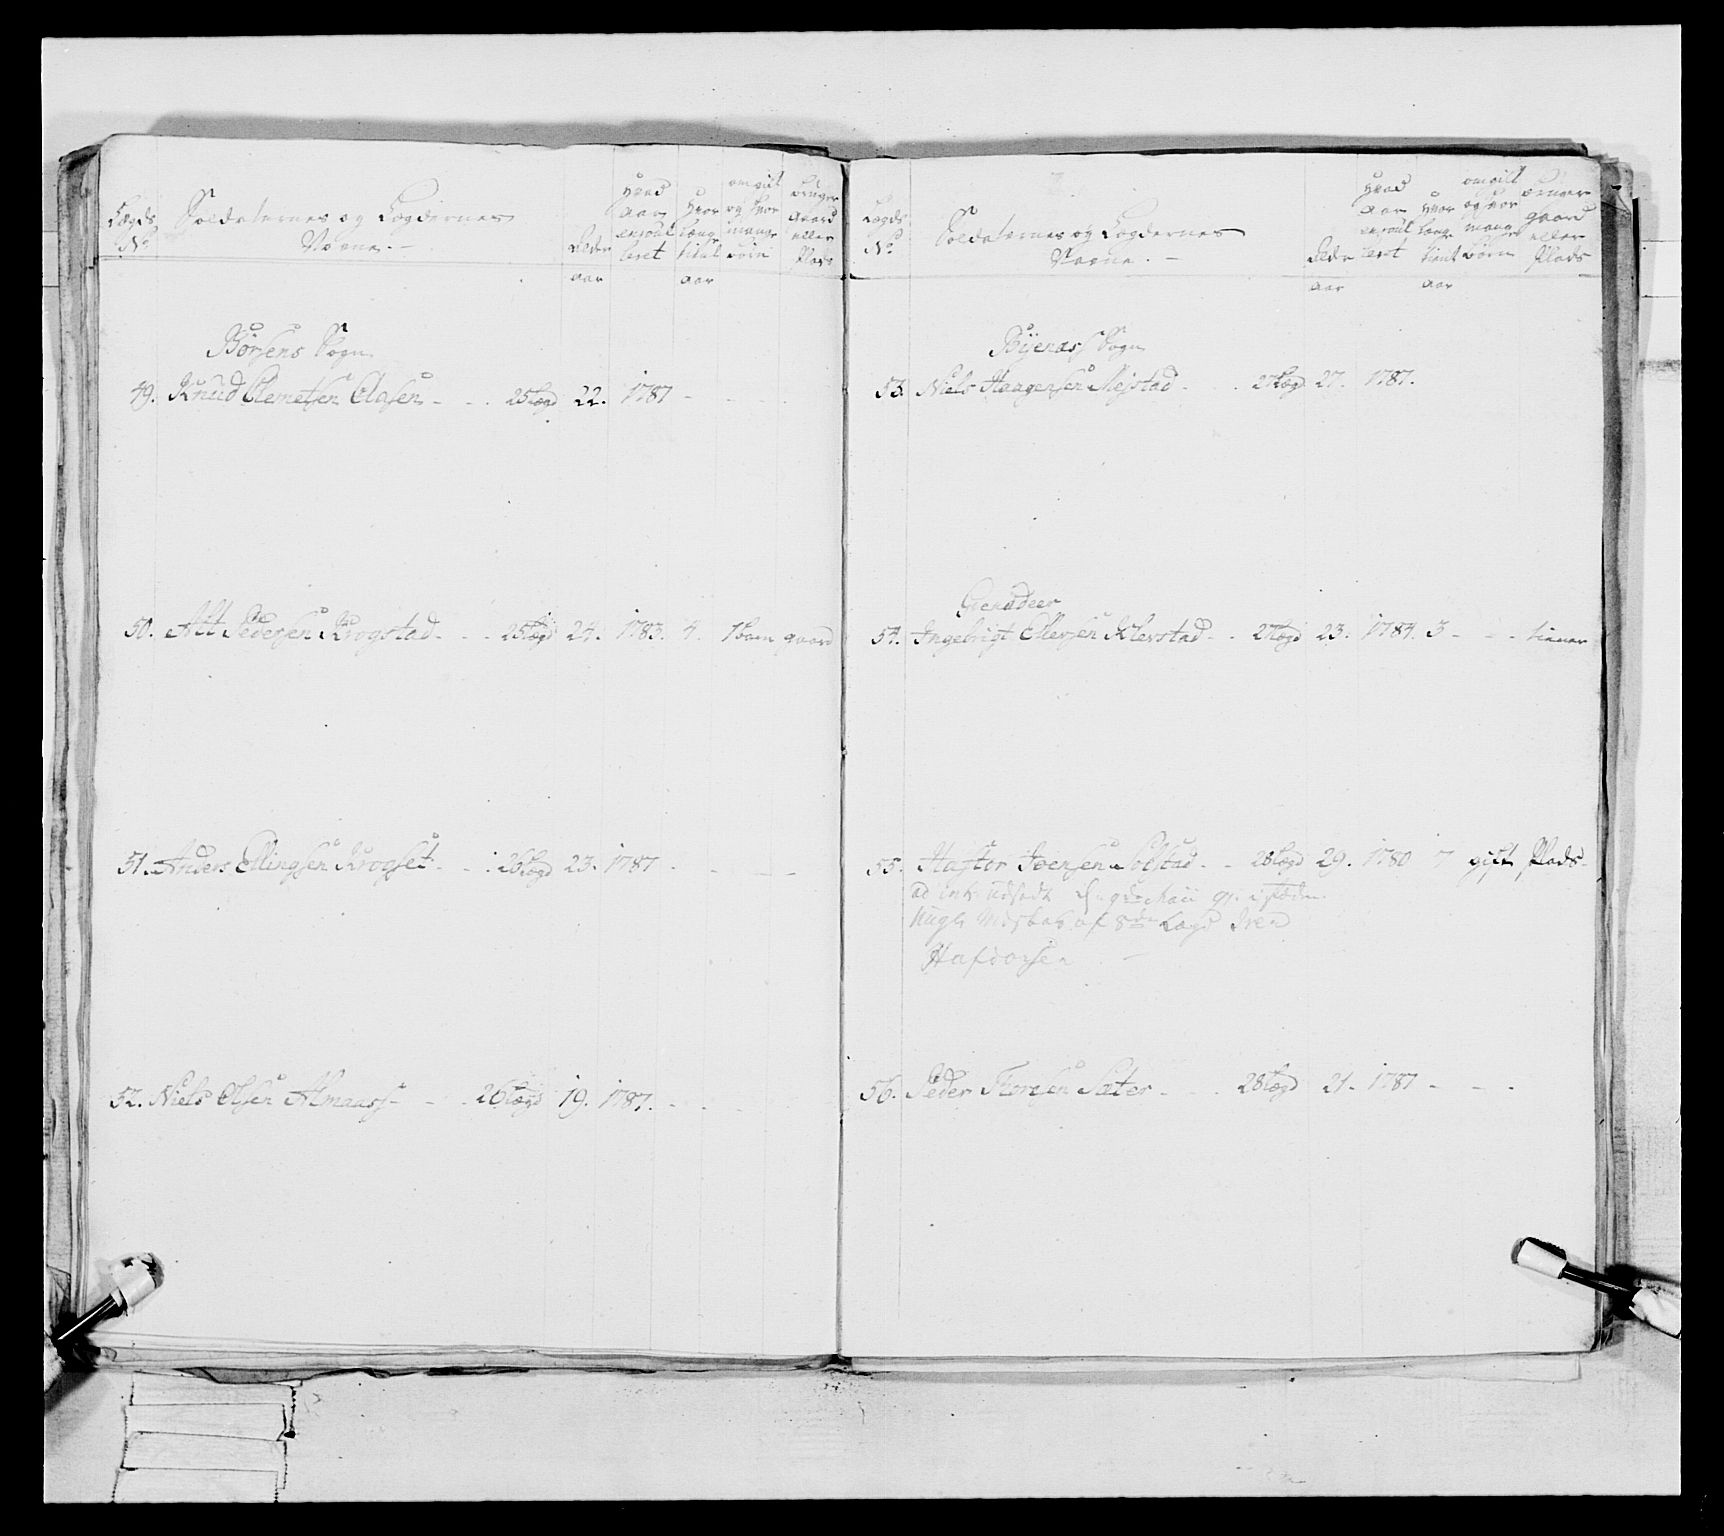 Lægds No
Soldaternes og Lægdernes
Navne. -
Alder
aar
Hvad
aar
enroul
leret
Hvor
længe
tient
aar
om gift
og hvor
mange
börn
bruger
gaard
eller
Plads
Börsens Sogn
49. Knud Clemetsen Elasen - - . 25 Lægd 22. 1787 -
50. Alt Pedersen Krogstad - - . 25 Lægd 24. 1783. 4. 1 barn gaard
51. Anders Ellingsen Krogset - - . 26 Lægd 23. 1787 -
52. Niels Olsen Almaass - - . 26 Lægd 19. 1787. -
Lægds No
Soldaternes og Lægdernes
Navne. -
Alder
aar
Hvad
aar
enroul
leret
Hvor
længe
tient
aar
om gift
og hvor
mange
börn
bruger
gaard
eller
Plads
Bÿenæs Sogn
53. Niels Haagensen Mejstad - . . 27 Lægd 27. 1787.
54. Ingebrigt Ellevsen Klevstad - . 27 Lægd 23. 1784. 3 - - - tienner
55. Haftor Joensen Solstad - - 28 Lægd 29. 1780 7 gift Plads -
af 8de Lægd Iver
Hafdorsen -
56. Peder Thoresen Sæter - - . 28 Lægd 21. 1787 - - -